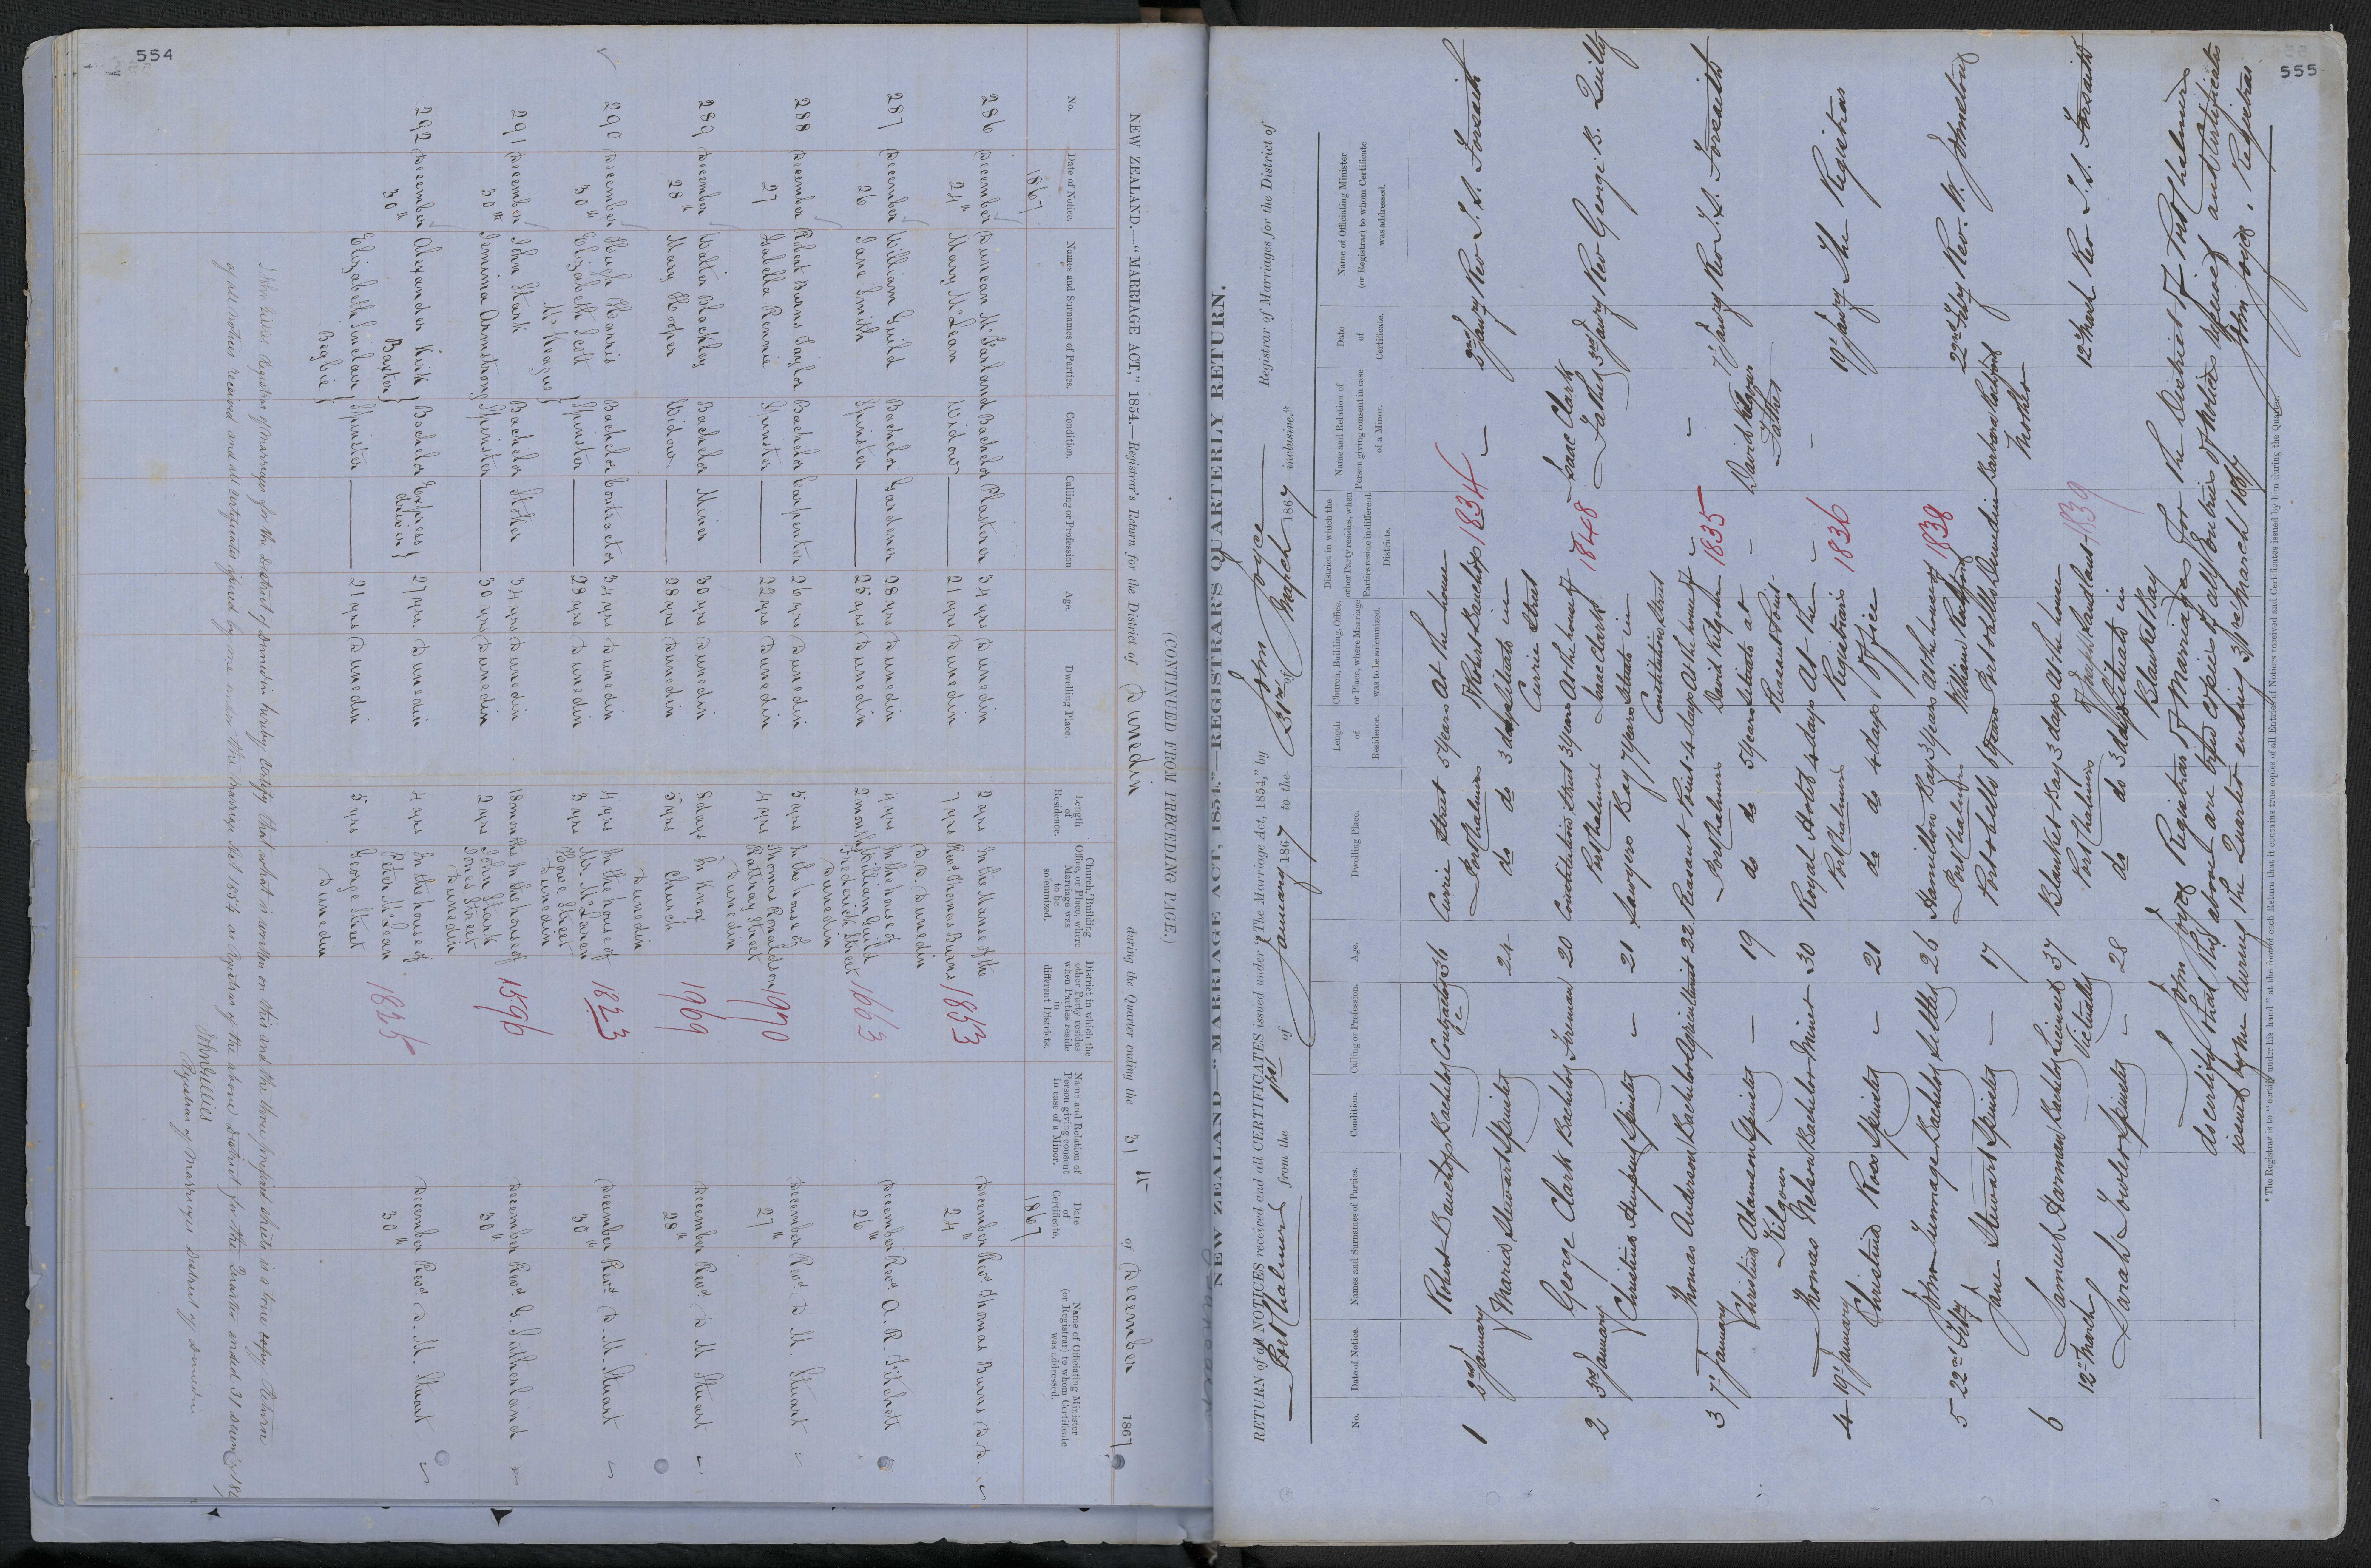 554
(CONTINUED FROM PRECEDING PAGE.)
NEW ZEALAND.—"MARRIAGE ACT," 1854.—Registrar's Return for the District of Dunedin during the Quarter ending the 31st of December 1867
No. Date of Notice. Names and Surnames of Parties. Condition. Calling or Profession Age. Dwelling Place. Length of Residence. Church, Building Office, or Place, where Marriage was to be solemnized. District in which the other Party resides when Parties reside in different Districts. Name and Relation of Person giving consent in case of a Minor. Date of Certificate. Name of Officiating Minister (or Registrar) to whom Certificate was addressed.
1867 1867
286 December 24th Duncan McFarland Bachelor Plasterer 34 yrs Dunedin 2 yrs In the Manse of the 1853 December 24th Revd Thomas Burns D.D.
Mary McLean Widow 21 yrs Dunedin 7 yrs Revd Thomas Burns D.D. Dunedin
287 December 26 William Guild Bachelor Gardener 28 yrs Dunedin 4 yrs In the house of 1663 December 26th Revd A. R. Fitchett
Jane Smith Spinster 25 yrs Dunedin 2 months William Guild Frederick Street Dunedin
288 December 27 Robert Burns Taylor Bachelor Carpenter 26 yrs Dunedin 5 yrs In the house of 1970 December 27th Revd D. M. Stuart
Isabella Rennie Spinster 22 yrs Dunedin 4 yrs Thomas Ronaldson Rattray Street Dunedin
289 December 28th Walter Blackley Bachelor Miner 30 yrs Dunedin 8 days In Knox 1969 December 28th Revd D M Stuart
Mary Hooper Widow 28 yrs Dunedin 5 yrs Church Dunedin
290 December 30th Hugh Harris Bachelor Contractor 34 yrs Dunedin 4 yrs In the house of 1823 December 30th Revd D M Stuart
Elizabeth Scott McKeague Spinster 28 yrs Dunedin 3 yrs Mr. McLaren Howe Street Dunedin
291 December 30th John Stark Bachelor Stoker 34 yrs Dunedin 18 months In the house of 1596 December 30th Revd G. Sutherland
Jemima Armstrong Spinster 30 yrs Dunedin 2 yrs John Stark Jones Street Dunedin
292 December 30th Alexander Kirk Baxter Bachelor Express driver 27 yrs. Dunedin 4 yrs In the house of 1825 December 30th Revd D. M. Stuart
Elizabeth Sinclair Begbie Spinster 21 yrs Dunedin 5 yrs Peter McLean George Street Dunedin
I John Gillies Registrar of Marriages for the District of Dunedin hereby certify that what is written on this and the three prefixed sheets is a true copy Return
of all notices received and all certificates issued by me under the Marriage Act 1854 as Registrar of the above District for the Quarter ended 31 December 1867
John Gillies
Registrar of Marriages District of Dunedin
555
NEW ZEALAND—"MARRIAGE ACT, 1854."—REGISTRAR'S QUARTERLY RETURN.
RETURN of all NOTICES received and all CERTIFICATES issued under "The Marriage Act, 1854," by John Joyce Registrar of Marriages for the District of
Port Chalmers from the 1st of January 1867 to the 31st of March 1867 inclusive.*
No. Date of Notice. Names and Surnames of Parties. Condition. Calling or Profession. Age. Dwelling Place. Length of Residence. Church, Building, Office, or Place, where Marriage was to be solemnized. District in which the other Party resides, when Parties reside in different Districts. Name and Relation of Person giving consent in case of a Minor. Date of Certificate. Name of Officiating Minister (or Registrar) to whom Certificate was addressed.
1 2nd January Robert Bauchop Bachelor 36 Currie Street Port Chalmers 5 years At the house of Robert Bauchop 1834 — 2nd Janry Rev T. S. Forsaith
Maria Stewart Spinster 24 do do 3 days situate in Currie Street
2 3rd January George Clark Bachelor Fireman 20 Constitution Street Port Chalmers 3 years At the house of Isaac Clark 1848 Isaac Clark Father 3rd Janry Rev George B. Quilty
Christina Spinster — 21 Sawyers Bay 7 years situate in Constitution Street
3 7th January Thomas Anderson Bachelor Agriculturist 22 Pleasant Point Port Chalmers 4 days At the house of David Kilgour 1835 — 7th Janry Rev T. S. Forsaith
Christina Adamson Kilgour Spinster — 19 do do 5 years situate at Pleasant Point — David Kilgour Father
4 19th January Thomas Nelson Bachelor Miner 30 Royal Hotel Port Chalmers 4 days At the Registrar's Office 1836 — 19th Janry The Registrar
Christina Ross Spinster — 21 do do 4 days
5 22nd Feby John Tummage Bachelor Settler 26 Hamilton Bay Port Chalmers 3 years At the house of William 1838 22nd Feby Rev. W. Johnstone
Jane Stewart Spinster — 17 Portobello 6 years Portobello Dunedin Barbara Mother
6 12th March Samuel Harman Bachelor Licensed Victualler 37 Blanket Bay Port Chalmers 3 days At the house 1839 12th March Rev T. S. Forsaith
Sarah Fowler Spinster — 28 do do 3 days situate in Blanket Bay
I John Joyce Registrar of Marriages for the District of Port Chalmers
do certify that the above are true copies of all entries of notices received and Certificates
issued by me during the Quarter ending 31st March 1867
John Joyce. Registrar
* The Registrar is to "certify under his hand" at the foot of each Return that it contains true copies of all Entries of Notices received and Certificates issued by him during the Quarter.